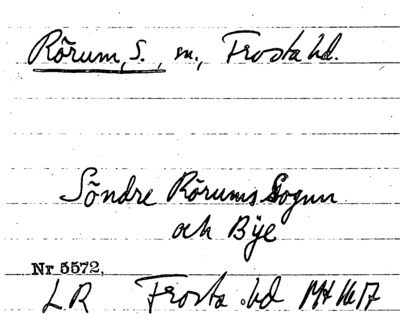 Rõrum, S., sn., Frosta hd.
Sõndre Rõrums Sognn
och Bÿe
Nr 5572,
LR Frosta hd 1741617